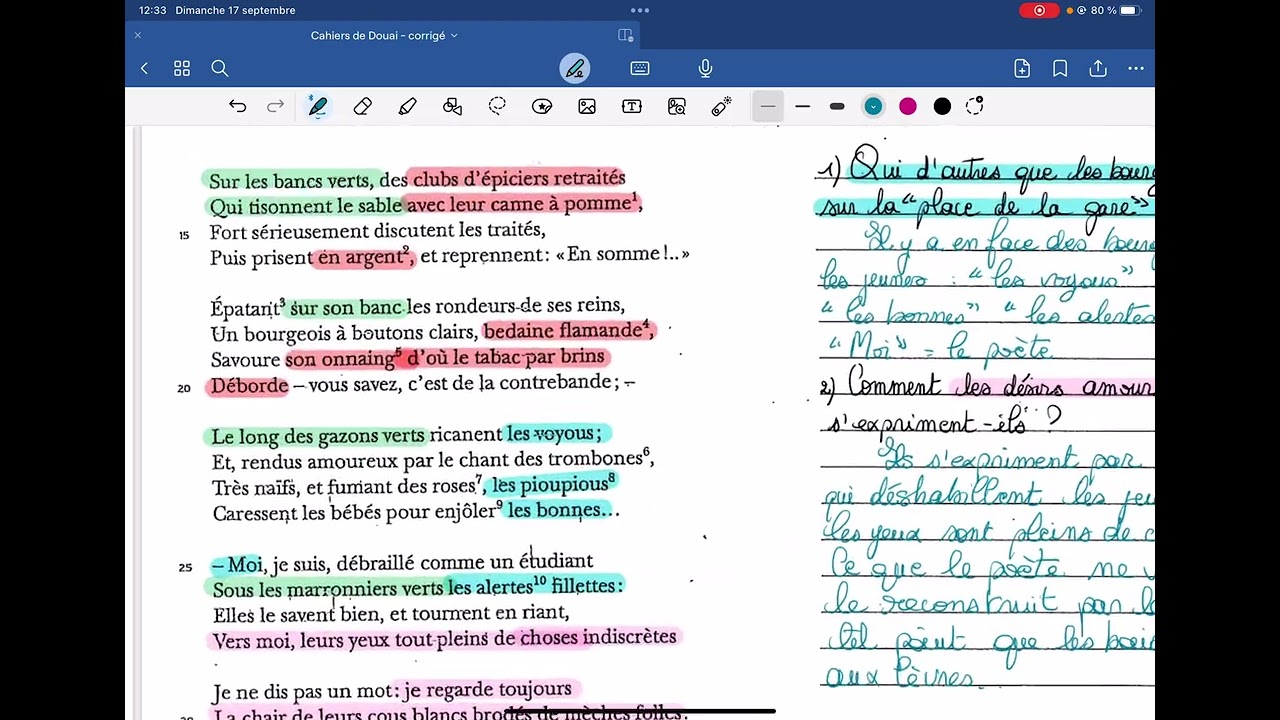 12:33 Dimanche 17 septembre
80 %
Cahiers de Douai – corrigé
Sur les bancs verts, des clubs d'épiciers retraités
Qui tisonnent le sable avec leur canne à pomme¹,
15 Fort sérieusement discutent les traités,
Puis prisent en argent², et reprennent : « En somme !.. »
Épatant³ sur son banc les rondeurs de ses reins,
Un bourgeois à boutons clairs, bedaine flamande⁴,
Savoure son onnaing⁵ d'où le tabac par brins
20 Déborde – vous savez, c'est de la contrebande ; –
Le long des gazons verts ricanent les voyous ;
Et, rendus amoureux par le chant des trombones⁶,
Très naïfs, et fumant des roses⁷, les pioupious⁸
Caressent les bébés pour enjôler⁹ les bonnes...
25 – Moi, je suis, débraillé comme un étudiant
Sous les marronniers verts les alertes¹⁰ fillettes :
Elles le savent bien, et tournent en riant,
Vers moi, leurs yeux tout pleins de choses indiscrètes
Je ne dis pas un mot : je regarde toujours
La chair de leurs cous blancs brodés de mèches folles :
1) Qui d'autres que les bourg
sur la "place de la gare"
Il y a en face des bourg
les jeunes : "les voyous"
"les bonnes" "les alertes
"Moi" = le poète
2) Comment les désirs amour
s'expriment-ils ?
Ils s'expriment par
qui déshabillent les jeu
les yeux sont pleins de c
Ce que le poète ne v
le reconstruit par l
tel point que les bais
aux lèvres.